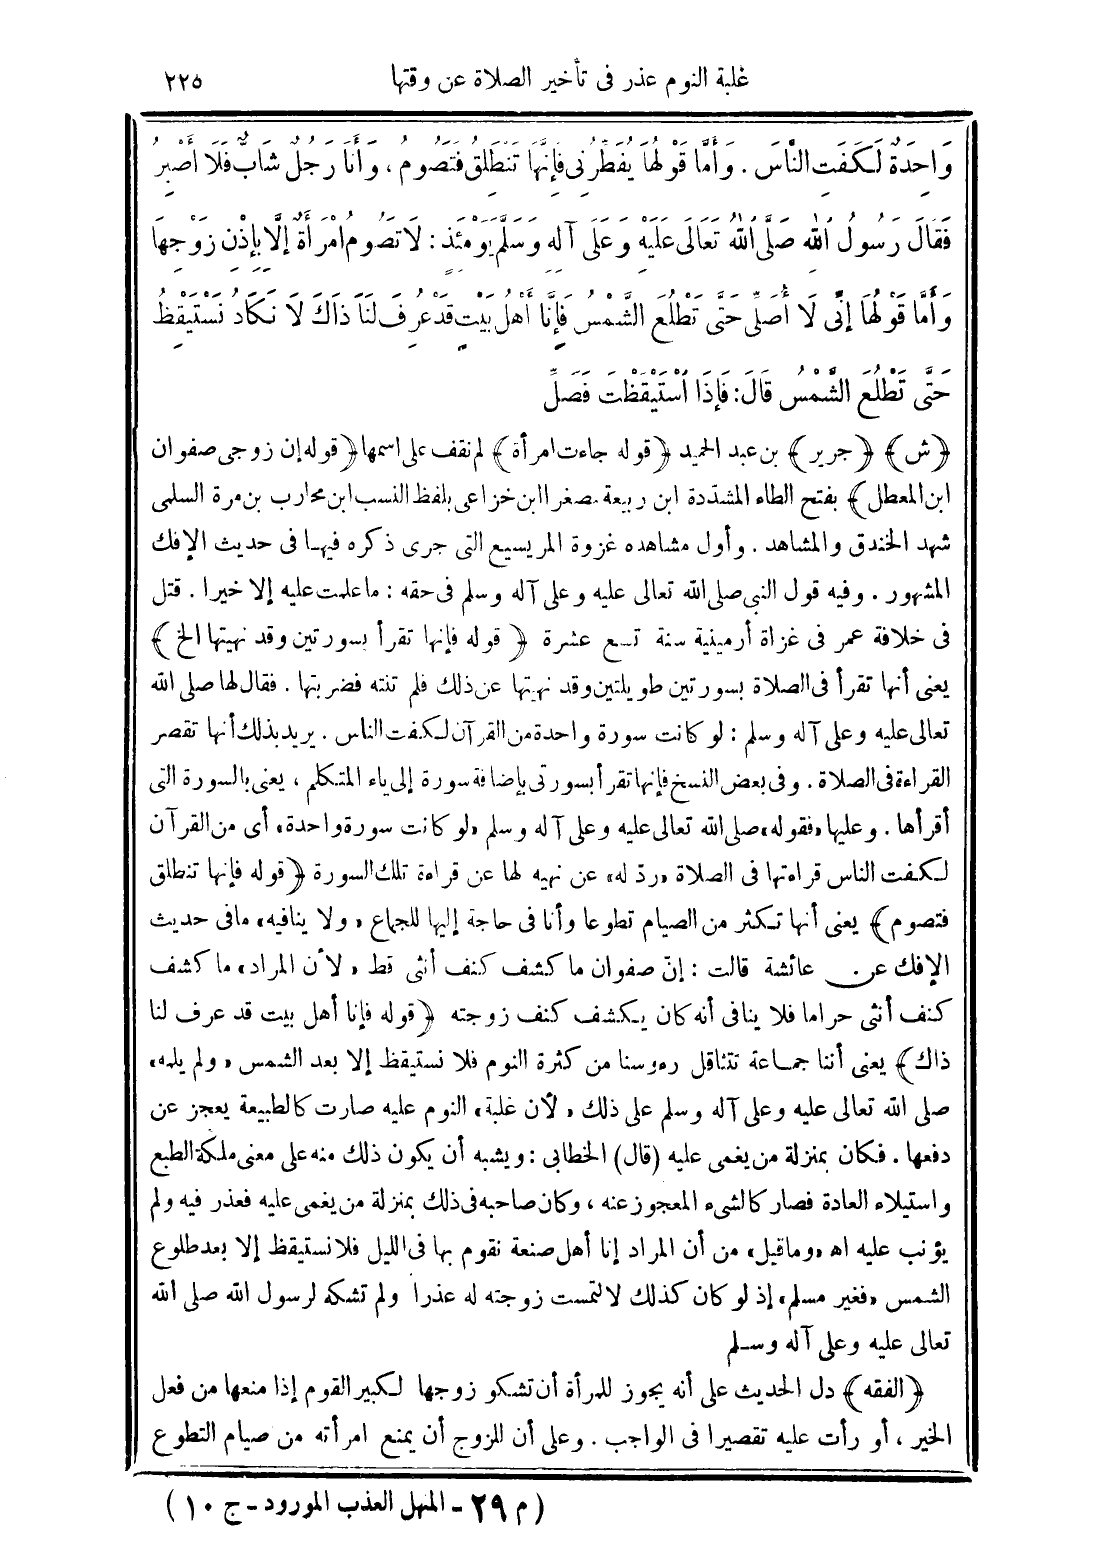 غلبة النوم عذر فى تأخير الصلاة عن وقتها ٢٢٥
وَاحِدَةً لَكَفَتِ النَّاسَ . وَأَمَّا قَوْلُهَا يُفَطِّرُنِى فَإِنَّهَا تَنْطَلِقُ فَتَصُومُ ، وَأَنَا رَجُلٌ شَابٌّ فَلَا أَصْبِرُ
فَقَالَ رَسُولُ اللهِ صَلَّى اللهُ تَعَالَى عَلَيْهِ وَعَلَى آلِهِ وَسَلَّمَ يَوْمَئِذٍ : لَا تَصُومُ امْرَأَةٌ إِلَّا بِإِذْنِ زَوْجِهَا
وَأَمَّا قَوْلُهَا إِنِّى لَا أُصَلِّى حَتَّى تَطْلُعَ الشَّمْسُ فَإِنَّا أَهْلُ بَيْتٍ قَدْ عُرِفَ لَنَا ذَاكَ لَا نَكَادُ نَسْتَيْقِظُ
حَتَّى تَطْلُعَ الشَّمْسُ قَالَ: فَإِذَا اسْتَيْقَظْتَ فَصَلِّ
﴿ش﴾ ﴿جرير﴾ بن عبد الحميد ﴿قوله جاءت امرأة﴾ لم نقف على اسمها ﴿قوله إن زوجى صفوان
ابن المعطل﴾ بفتح الطاء المشدّدة ابن ربيعة مصغرا ابن خزاعى بلفظ النسب ابن محارب بن مرة السلمى
شهد الخندق والمشاهد . وأول مشاهده غزوة المريسيع التى جرى ذكره فيها فى حديث الإفك
المشهور . وفيه قول النبى صلى الله تعالى عليه وعلى آله وسلم فى حقه : ما علمت عليه إلا خيرا . قتل
فى خلافة عمر فى غزاة أرمينية سنة تسع عشرة ﴿ قوله فإنها تقرأ بسورتين وقد نهيتها الخ ﴾
يعنى أنها تقرأ فى الصلاة بسورتين طويلتين وقد نهيتها عن ذلك فلم تنته فضربتها . فقال لها صلى الله
تعالى عليه وعلى آله وسلم : لو كانت سورة واحدة من القرآن لكفت الناس . يريد بذلك أنها تقصر
القراءة فى الصلاة . وفى بعض النسخ فإنها تقرأ بسورتى بإضافة سورة إلى ياء المتكلم ، يعنى بالسورة التى
أقرأها . وعليها «فقوله» صلى الله تعالى عليه وعلى آله وسلم «لو كانت سورة واحدة» أى من القرآن
لكفت الناس قراءتها فى الصلاة «ردّ له» عن نهيه لها عن قراءة تلك السورة ﴿قوله فإنها تنطلق
فتصوم﴾ يعنى أنها تكثر من الصيام تطوعا وأنا فى حاجة إليها للجماع « ولا ينافيه » مافى حديث
الإفك عن عائشة قالت : إنّ صفوان ما كشف كنف أنثى قط « لأن المراد » ما كشف
كنف أنثى حراما فلا ينافى أنه كان يكشف كنف زوجته ﴿قوله فإنا أهل بيت قد عرف لنا
ذاك﴾ يعنى أننا جماعة تتثاقل رءوسنا من كثرة النوم فلا نستيقظ إلا بعد الشمس « ولم يلمه »
صلى الله تعالى عليه وعلى آله وسلم على ذلك « لأن غلبة » النوم عليه صارت كالطبيعة يعجز عن
دفعها . فكان بمنزلة من يغمى عليه (قال) الخطابى : ويشبه أن يكون ذلك منه على معنى ملكة الطبع
واستيلاء العادة فصار كالشىء المعجوز عنه ، وكان صاحبه فى ذلك بمنزلة من يغمى عليه فعذر فيه ولم
يؤنب عليه اه «وما قيل» من أن المراد إنا أهل صنعة نقوم بها فى الليل فلا نستيقظ إلا بعد طلوع
الشمس «فغير مسلم» إذ لو كان كذلك لالتمست زوجته له عذرا ولم تشكه لرسول الله صلى الله
تعالى عليه وعلى آله وسلم
﴿الفقه﴾ دل الحديث على أنه يجوز للمرأة أن تشكو زوجها لكبير القوم إذا منعها من فعل
الخير ، أو رأت عليه تقصيرا فى الواجب . وعلى أن للزوج أن يمنع امرأته من صيام التطوع
( م ٢٩ - المنهل العذب المورود - ج ١٠ )